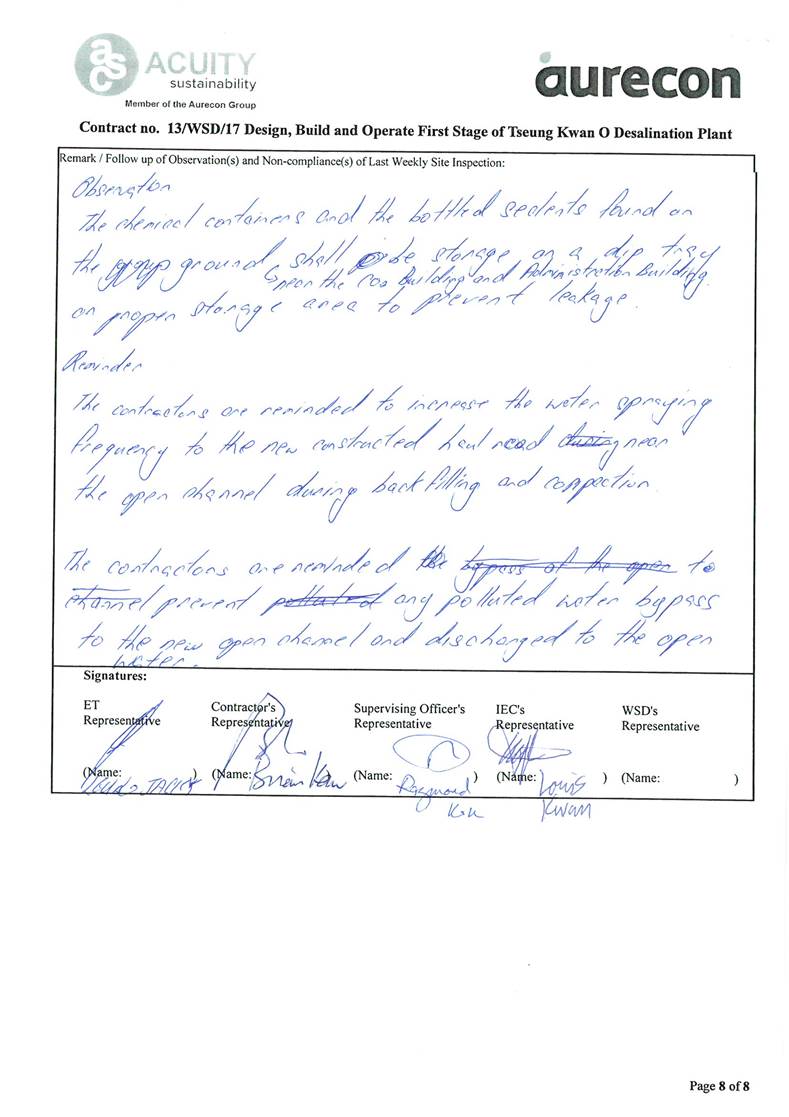 asc ACUITY
sustainability
Member of the Aurecon Group
aurecon
Contract no. 13/WSD/17 Design, Build and Operate First Stage of Tseung Kwan O Desalination Plant
Remark / Follow up of Observation(s) and Non-compliance(s) of Last Weekly Site Inspection:
Observation
The chemical containers and the bottled sealents found on
the ground shall be storage on a dip tray
near the CO2 Building and Administration Building.
on proper storage area to prevent leakage.
Reminder
The contractors are reminded to increase the water spraying
frequency to the new constructed haul road during near
the open channel during backfilling and compaction.
The contractors are reminded the bypass of the open to
channel prevent polluted any polluted water bypass
to the new open channel and discharged to the open
water.
Signatures:
ET Representative
Contractor's Representative
Supervising Officer's Representative
IEC's Representative
WSD's Representative
(Name: )
(Name: Brian
(Name: Raymond )
(Name: Louis Kwan )
(Name: )
Page 8 of 8